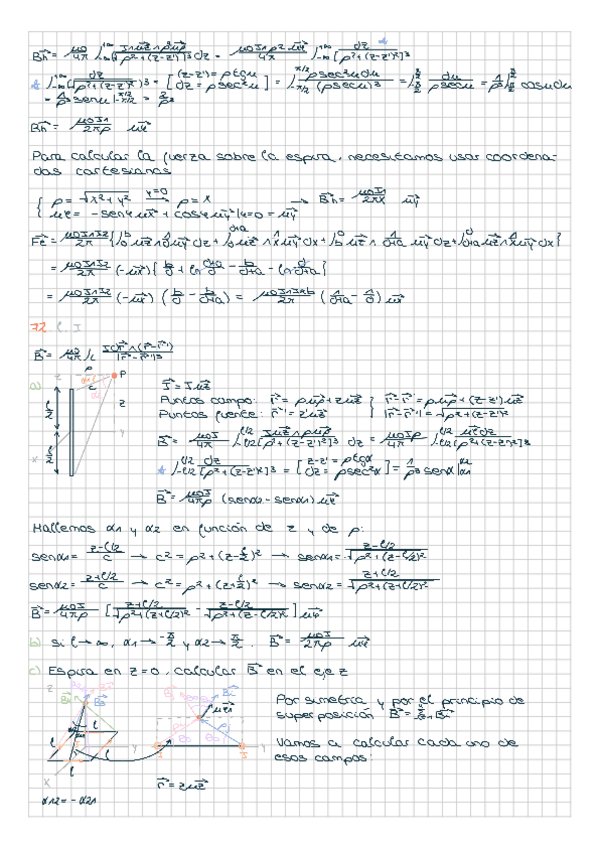 Bh = μ0/4π ∫-∞^+∞ I1uz ∧ ρuρ / √[ρ²+(z-z')²]³ dz = μ0I1ρ² uφ / 4π ∫-∞^+∞ dz / √[ρ²+(z-z')²]³
∫-∞^+∞ dz / √(ρ²+(z-z')²)³ = [(z-z') = ρtgα
dz = ρsec²α] = ∫-π/2^π/2 ρsec²αdα / (ρsecα)³ = ∫ dα / ρsecα = 1/ρ ∫ cosαdα
= 1/ρ² senα |-π/2^π/2 = 2/ρ²
Bh = μ0I1/2πρ uφ
Para calcular la fuerza sobre la espira, necesitamos usar coordena-
das cartesianas
{ ρ = √x²+y² y=0 → ρ = x → Bh = μ0I1/2πx uy
uφ = -senφ ux + cosφ uy |φ=0 = uy
Fe = μ0I1I2/2π {∫0^b uz∧1/d uy dz + ∫d^d+a ux∧1/x uy dx + ∫b^0 uz∧1/d+a uy dz + ∫d+a^d ux∧1/x uy dx}
= μ0I1I2/2π (-ux) { b/d + ln d+a/d - b/d+a - ln d+a/d }
= μ0I1I2/2π (-ux) ( b/d - b/d+a ) = μ0I1I2b/2π ( 1/d+a - 1/d ) ux
72 L, I
B = μ0/4π ∫L Idr' ∧ (r-r') / |r-r'|³
a)
P
I = Iuz
Puntos campo: r = ρuρ + zuz } r-r' = ρuρ + (z-z')uz
Puntos fuente: r' = z'uz |r-r'| = √ρ²+(z-z')²
B = μ0I/4π ∫-L/2^L/2 Iuz∧ρuρ / √[ρ²+(z-z')²]³ dz = μ0Iρ/4π ∫-L/2^L/2 uφdz / √[ρ²+(z-z')²]³
∫-L/2^L/2 dz / √[ρ²+(z-z')²]³ = [z-z' = ρtgα
dz = ρsec²α] = 1/ρ² senα |α1^α2
B = μ0I/4πρ (senα2 - senα1) uφ
Hallemos α1 y α2 en función de z y de ρ:
senα1 = z-L/2 / c → c² = ρ²+(z-L/2)² → senα1 = z-L/2 / √ρ²+(z-L/2)²
senα2 = z+L/2 / c → c² = ρ²+(z+L/2)² → senα2 = z+L/2 / √ρ²+(z+L/2)²
B = μ0I/4πρ [ z+L/2 / √ρ²+(z+L/2)² - z-L/2 / √ρ²+(z-L/2)² ] uφ
b) si L → ∞, α1 → -π/2 y α2 → π/2. B = μ0I/2πρ uφ
c) Espira en z=0, calcular B en el eje z
Por simetría y por el principio de
superposición B =
Vamos a calcular cada uno de
esos campos:
r = zuz
α12 = -α21